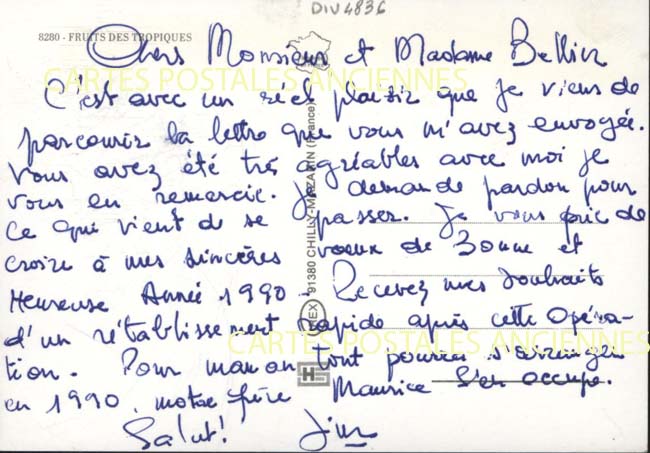 DIV4836
8280 - FRUITS DES TROPIQUES
Chers Monsieur et Madame Bellier
CARTES POSTALES ANCIENNES
C'est avec un réel plaisir que je viens de
parcourir la lettre que vous m'avez envoyée.
Vous avez été très agréables avec moi je
vous en remercie. Je demande pardon pour
ce qui vient de se passer. Je vous prie de
croire à mes sincères voeux de Bonne et
Heureuse Année 1990. Recevez mes souhaits
d'un rétablissement rapide après cette Opéra-
CARTES POSTALES ANCIENNES
tion. Pour maman tout pourra s'arranger
en 1990, notre frère Maurice s'en occupe.
Salut!
91380 CHILLY-MAZARIN (France)